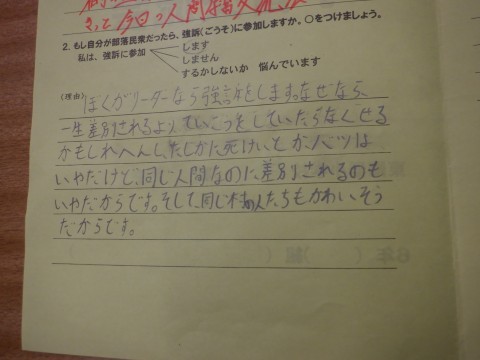 きって今日の人間
2. もし自分が部落民衆だったら、強訴(ごうそ)に参加しますか。○をつけましょう。
私は、強訴に参加
します
しません
するかしないか 悩んでいます
(理由)
ぼくがリーダーなら強訴をします。なぜなら、
一生差別されるよりていこうをしていたらなくせる
かもしれへんし、たしかに死けいとかバツは
いやだけど、同じ人間なのに差別されるのも
いやだからです。そして、同じ村の人たちもかわいそう
だからです。